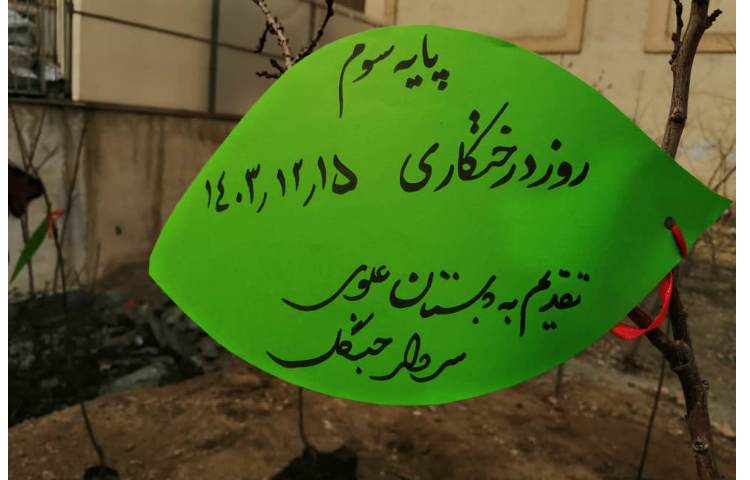 پایه سوم
روز درختکاری ۱۴۰۳٫۱۲٫۱۵
تقدیم به دبستان علوی
سردار جنگل